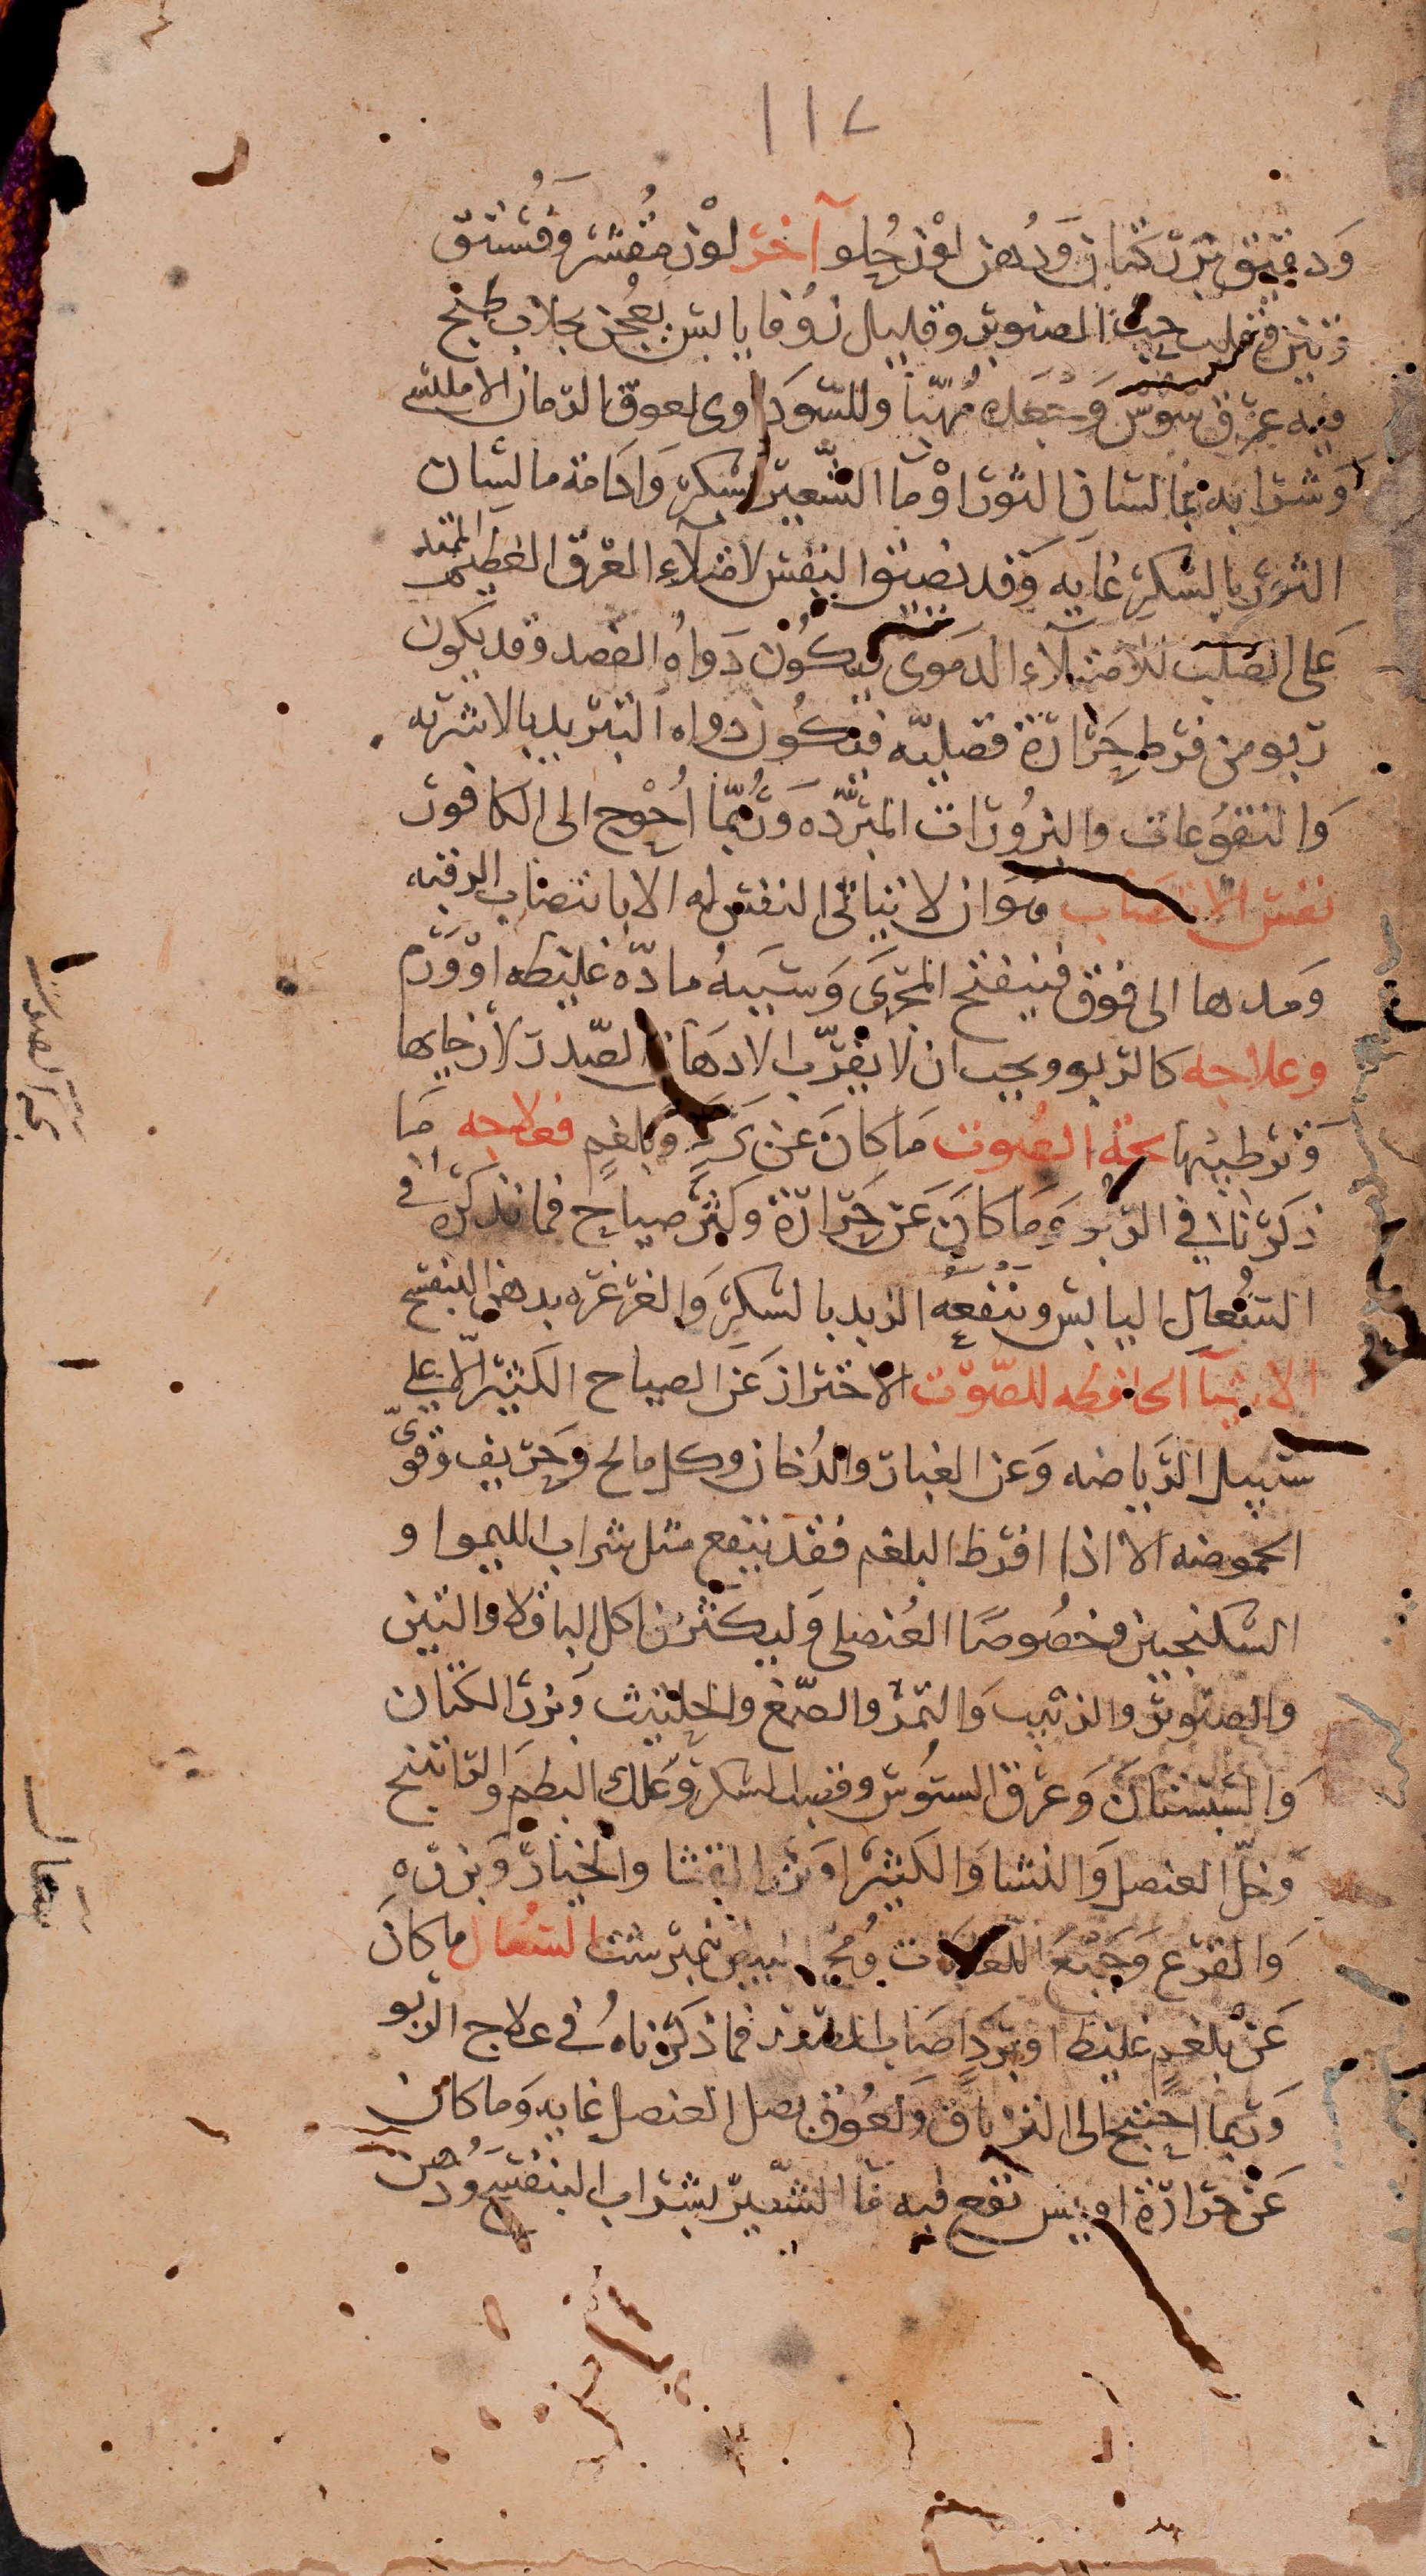 ١١٧
وَدقيق بزر كتان وَدُهن لوْز حُلو آخر لوْز مُقشر وَفُستق
وتين وقلب حب الصنوبر وقليل زوفا يابس يعجن بجلاب طبخ
فيه عرق سُوس وَيستعمله مُهيّأ وللسّودَاوى لعوق الرمان الامليسى
وَشرابه بما لسان الثور اوْ ما الشّعير بسكر وَادَامة ما لسان
الثور بالسّكر غايه وَقد يضيق النفس لامتلاءِ العرق العظيم الممتد
عَلى الصُلب للامتلاء الدمَوىّ فيكُون دَواهُ الفصد وقد يكون
ربو من فرط حَرَارَة قصبيّه فيكُون دواه التبريد بالاشربه
وَالنقوُعات والبزُورَات المبَرّده وَرُبّما اُحْوج الى الكافور
نفس الانتصَاب هوَ ان لا يتاتى النفس له الا بانتصاب الرقبه
وَمدها الى فوق فينفتح المجرَى وَسَببهُ مادّه غليظه اوْ وَرَم
وعلاجه كالربو ويجب ان لا يقرّب الادهَان الصّدر لارخايها
وَترطيبها بحة الصُوت مَا كانَ عن بَرَدٍ وبلغمٍ فعلاجه مَا
ذكَرْناهُ في الربُو وَمَا كانَ عَن حَرَارَة وكَثرة صياح فما نذكرهُ في
السُعال اليابس وَينفعهُ الزبد بالسّكر وَالغرغره بدهن البنفسج
الاشيآ الحافظه للصّوْت الاحتراز عَن الصياح الكثير الا على
سَبيل الرّياضه وَعن الغبار والدُخان وكل مالح وَحرّيف وَقوىّ
الحموضه الا اذا افرط البلغم فقد ينفع مثل شراب الليموا و
السكنجبين وخصُوصًا العُنصلى وَليكثر من اكل الباقلا والتين
والصنوبر والزبيب وَالتمر والصّمغ والحلتيث وَبزر الكتان
وَالسّبستان وَعرق السُوس وقصب السكر وَعلك البطم والراتينج
وَخلّ العنصل وَالنشا وَالكثيرا وَبزر القثا والخيار وَبزره
وَالقرع وَجميْع اللعابَات وَمُخ البيض نيمبرشت السُعال ما كانَ
عَن بلغمٍ غليظ اوبرَدٍ اصَابَ الصدر فما ذكَرْناهُ في علاج الربو
وَربما احتيج الى الترياق وَلعُوق بصل العنصل غايه وَما كان
عَن حَرَارَة او يبس نفع فيه مَا الشّعير بشراب البنفسج وَدُهن
بحة الصوت
سعال